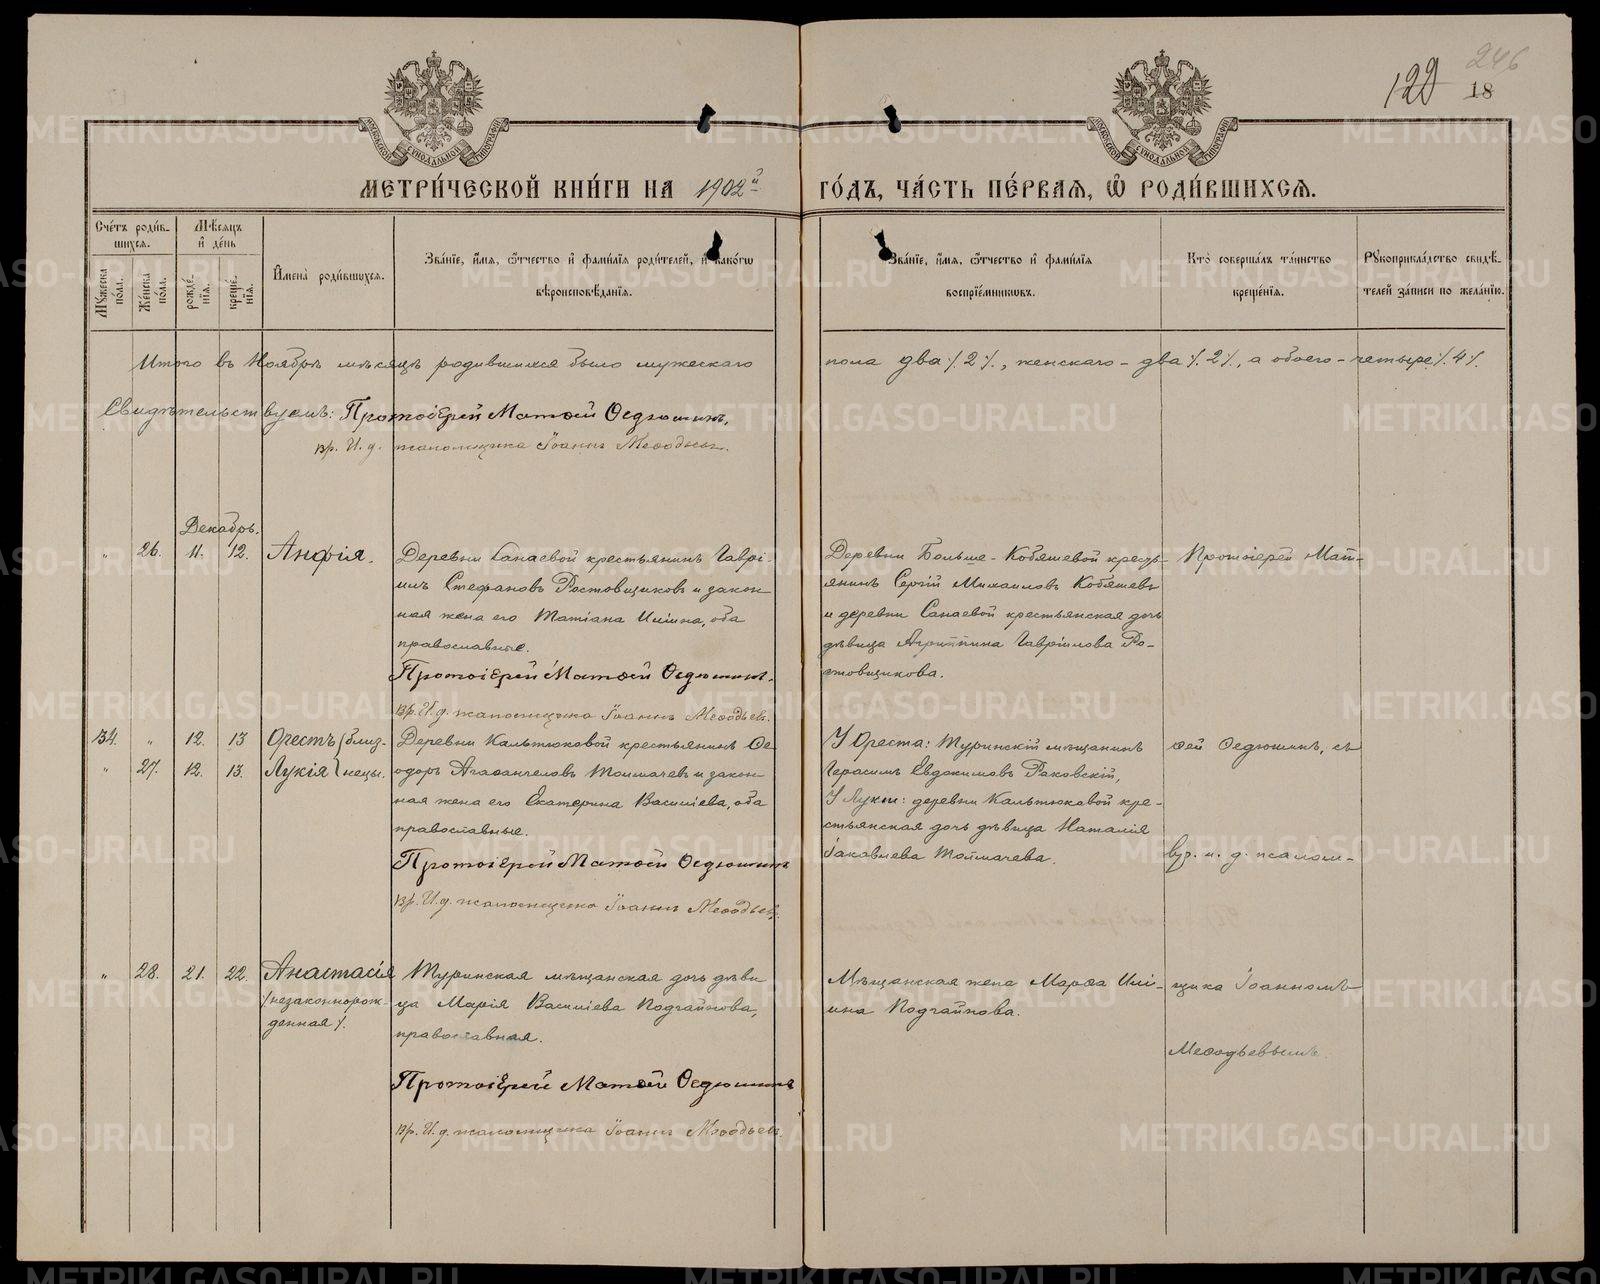 246
122
18
МОСКОВСКОЙ СѴНОДАЛЬНОЙ ТИПОГРАФІИ
МОСКОВСКОЙ СѴНОДАЛЬНОЙ ТИПОГРАФІИ
МЕТРИ́ЧЕСКОЙ КНИ́ГИ НА 1902й ГО́ДЪ, ЧА́СТЬ ПЕ́РВАѦ, Ѡ҆ РОДИ́ВШИХСѦ.
Сче́тъ роди́в-
шихсѧ.
Мужеска по́ла.
Же́нска по́ла.
Мѣ́сѧцъ
и҆ де́нь
рожде́-
нїѧ.
креще́-
нїѧ.
И҆мена̀ роди́вшихсѧ.
Зва́нїе, и҆́мѧ, ѻ҆́тчество и҆ фами́лїѧ роди́телей, и҆ како́гѡ
вѣроисповѣ́данїѧ.
Зва́нїе, и҆́мѧ, ѻ҆́тчество и҆ фами́лїѧ
воспрїе́мникѡвъ.
Кто̀ соверша́лъ та́инство
креще́нїѧ.
Рꙋкоприкла́дство свидѣ́-
телей за́писи по жела́нїю.
Итого въ Ноябрѣ мѣсяцѣ родившихся было мужескаго пола два /. 2 /., женскаго - два /. 2 /., а обоего - четыре /. 4 /.
Свидѣтельствуемъ: Протоіерей Матѳей Ѳедюшинъ,
вр. И. д. псаломщика Іоаннъ Меѳодьевъ.
Декабрь.
" 26. 11. 12. Анфія.
Деревни Санаевой крестьянинъ Гаврі-
илъ Стефановъ Ростовщиковъ и закон-
ная жена его Татіана Иліина, оба
православные.
Протоіерей Матѳей Ѳедюшинъ.
вр. И. д. псаломщика Іоаннъ Меѳодьевъ.
Деревни Больше-Кобяшевой кресть-
янинъ Сергій Михаиловъ Кобяшевъ
и деревни Санаевой крестьянская дочь
дѣвица Агриппина Гавріилова Ро-
стовщикова.
Протоіерей Мат-
34. " 12. 13 Орестъ (близ-
" 27. 12. 13. Лукія (нецы.
Деревни Кальтюковой крестьянинъ Ѳе-
одоръ Агаѳангеловъ Толмачевъ и закон-
ная жена его Екатерина Василіева, оба
православные.
Протоіерей Матѳей Ѳедюшинъ
вр. И. д. псаломщика Іоаннъ Меѳодьевъ.
У Ореста: Туринскій мѣщанинъ
Герасимъ Евдокимовъ Раковскій,
У Лукіи: деревни Кальтюковой кре-
стьянская дочь дѣвица Наталія
Іаковлева Толмачева.
ѳей Ѳедюшинъ, съ
вр. и. д. псалом-
" 28. 21. 22. Анастасія
/незаконнорож-
денная/.
Туринская мѣщанская дочь дѣви-
ца Марія Василіева Подчайнова,
православная.
Протоіерей Матѳей Ѳедюшинъ
вр. И. д. псаломщика Іоаннъ Меѳодьевъ.
Мѣщанская жена Марѳа Илі-
ина Подчайнова.
щика Іоанномъ
Меѳодьевымъ.
METRIKI.GASO-URAL.RU